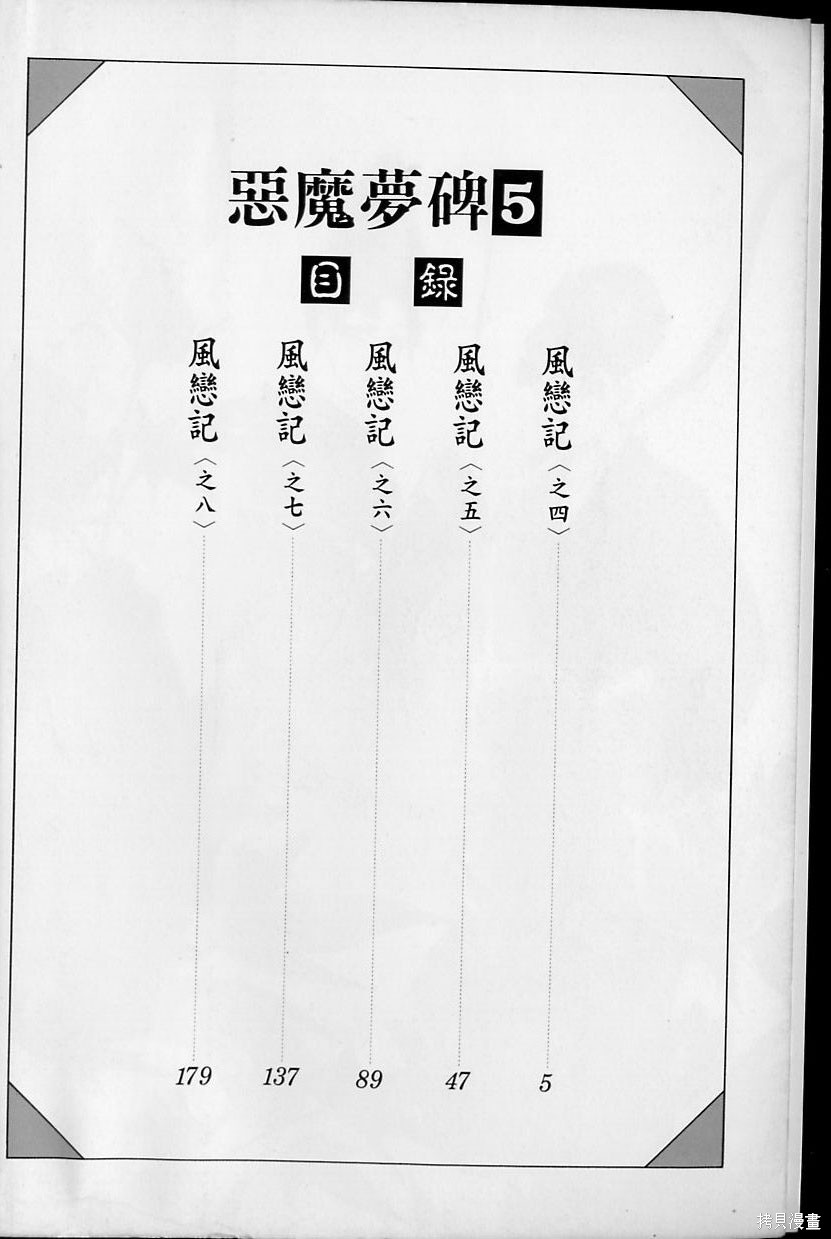 惡魔夢碑5
目 錄
風戀記〈之四〉 5
風戀記〈之五〉 47
風戀記〈之六〉 89
風戀記〈之七〉 137
風戀記〈之八〉 179
拷貝漫畫